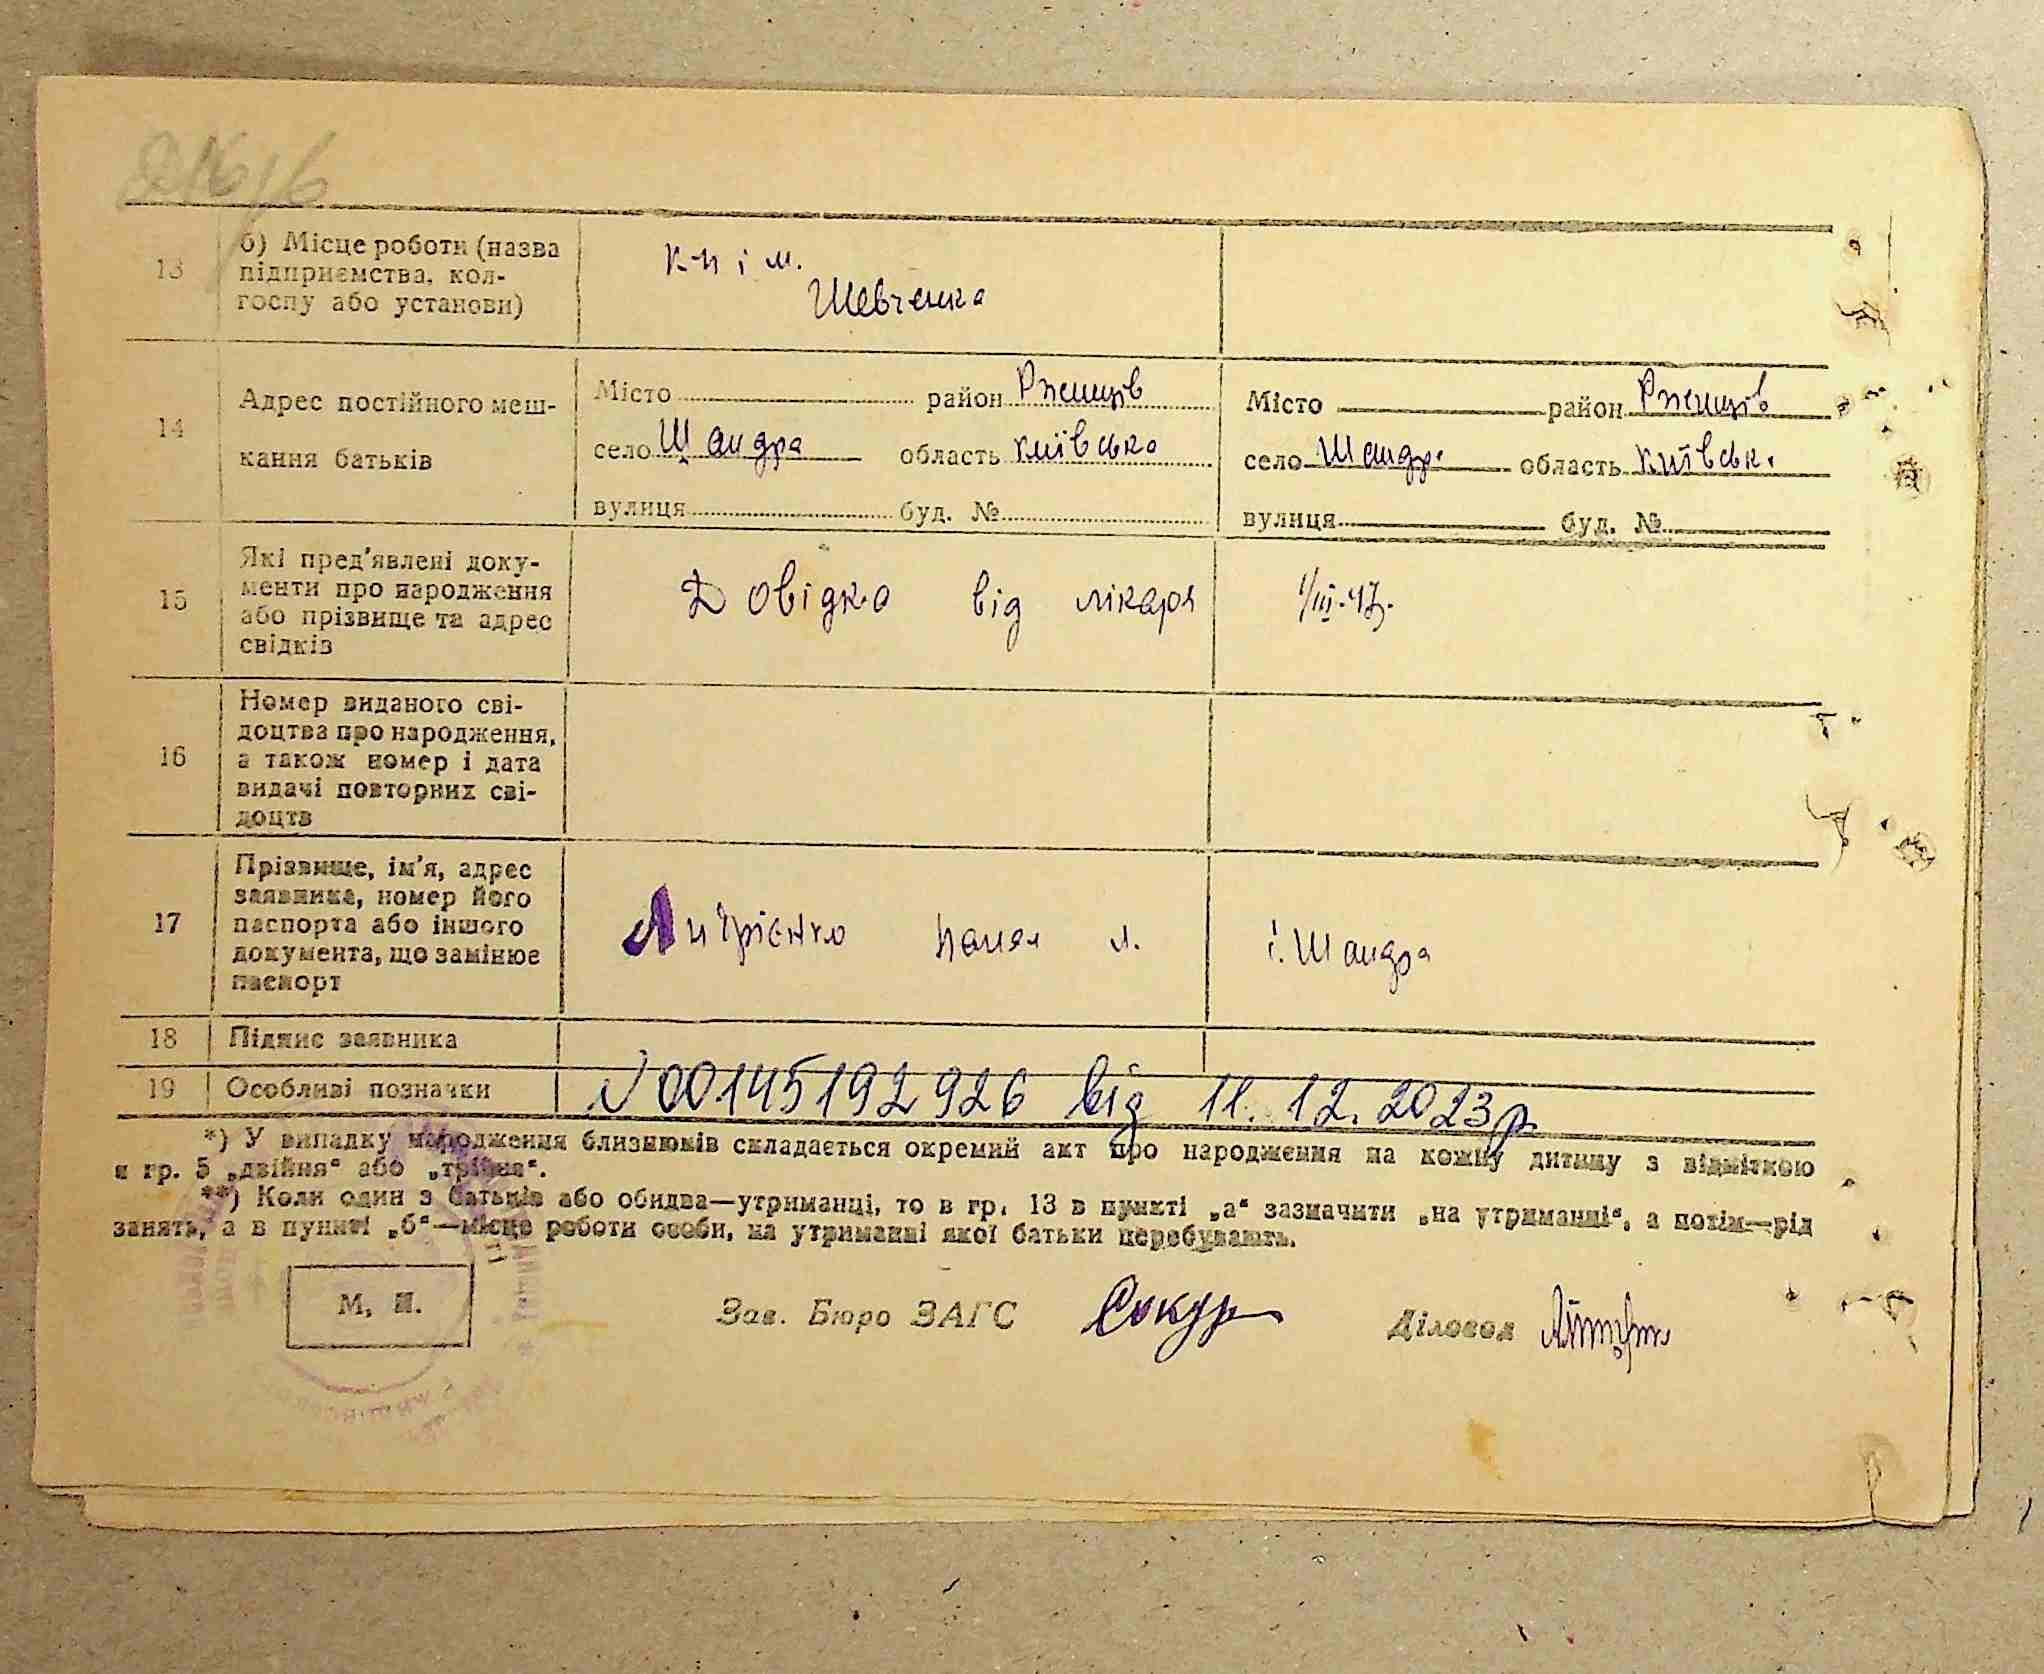 13
б) Місце роботи (назва
підприємства, кол-
госпу або установи)
к-п ім.
Шевченка
14
Адрес постійного меш-
кання батьків
Місто район Ржищів
село Шандра область Київська
вулиця буд. №
Місто район Ржищів
село Шандра область Київськ.
вулиця буд. №
15
Які пред'явлені доку-
менти про народження
або прізвище та адрес
свідків
Довідка від лікаря 1/III-47р.
16
Номер виданого сві-
доцтва про народження,
а також номер і дата
видачі повторних сві-
доцтв
17
Прізвище, ім'я, адрес
заявника, номер його
паспорта або іншого
документа, що замінює
паспорт
с. Шандра
18
Підпис заявника
19
Особливі позначки
№00145192926 від 11.12.2023р.
*) У випадку народження близнюків складається окремий акт про народження на кожну дитину з відміткою
в гр. 5 „двійня“ або „трійня“.
**) Коли один з батьків або обидва—утриманці, то в гр. 13 в пункті „а“ зазначити „на утриманні“, а потім—рід
занять, а в пункті „б“—місце роботи особи, на утриманні якої батьки перебувають.
М. П.
Зав. Бюро ЗАГС Сокур
Діловод